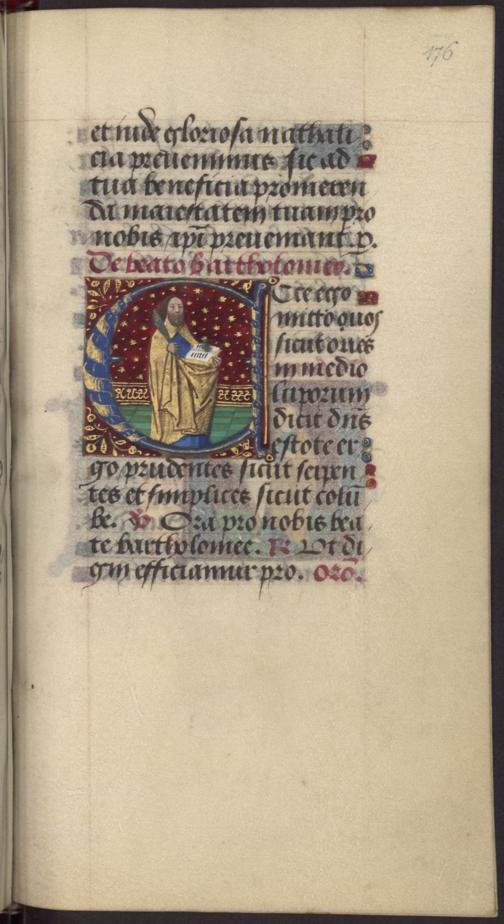 176
et in die gloriosa nathali
cia preuenimus sic ad
tua beneficia promeren
da maiestatem tuam pro
nobis ipi preueniant. p.
De beato Bartholomeo.
Cce ego
mitto quos
sicut oues
in medio
luporum
dicit dns
estote er
go prudentes sicut serpen
tes et simplices sicut colu
be. V Ora pro nobis bea
te bartholomee. R Ut di
gni efficiamur pro. Oro.